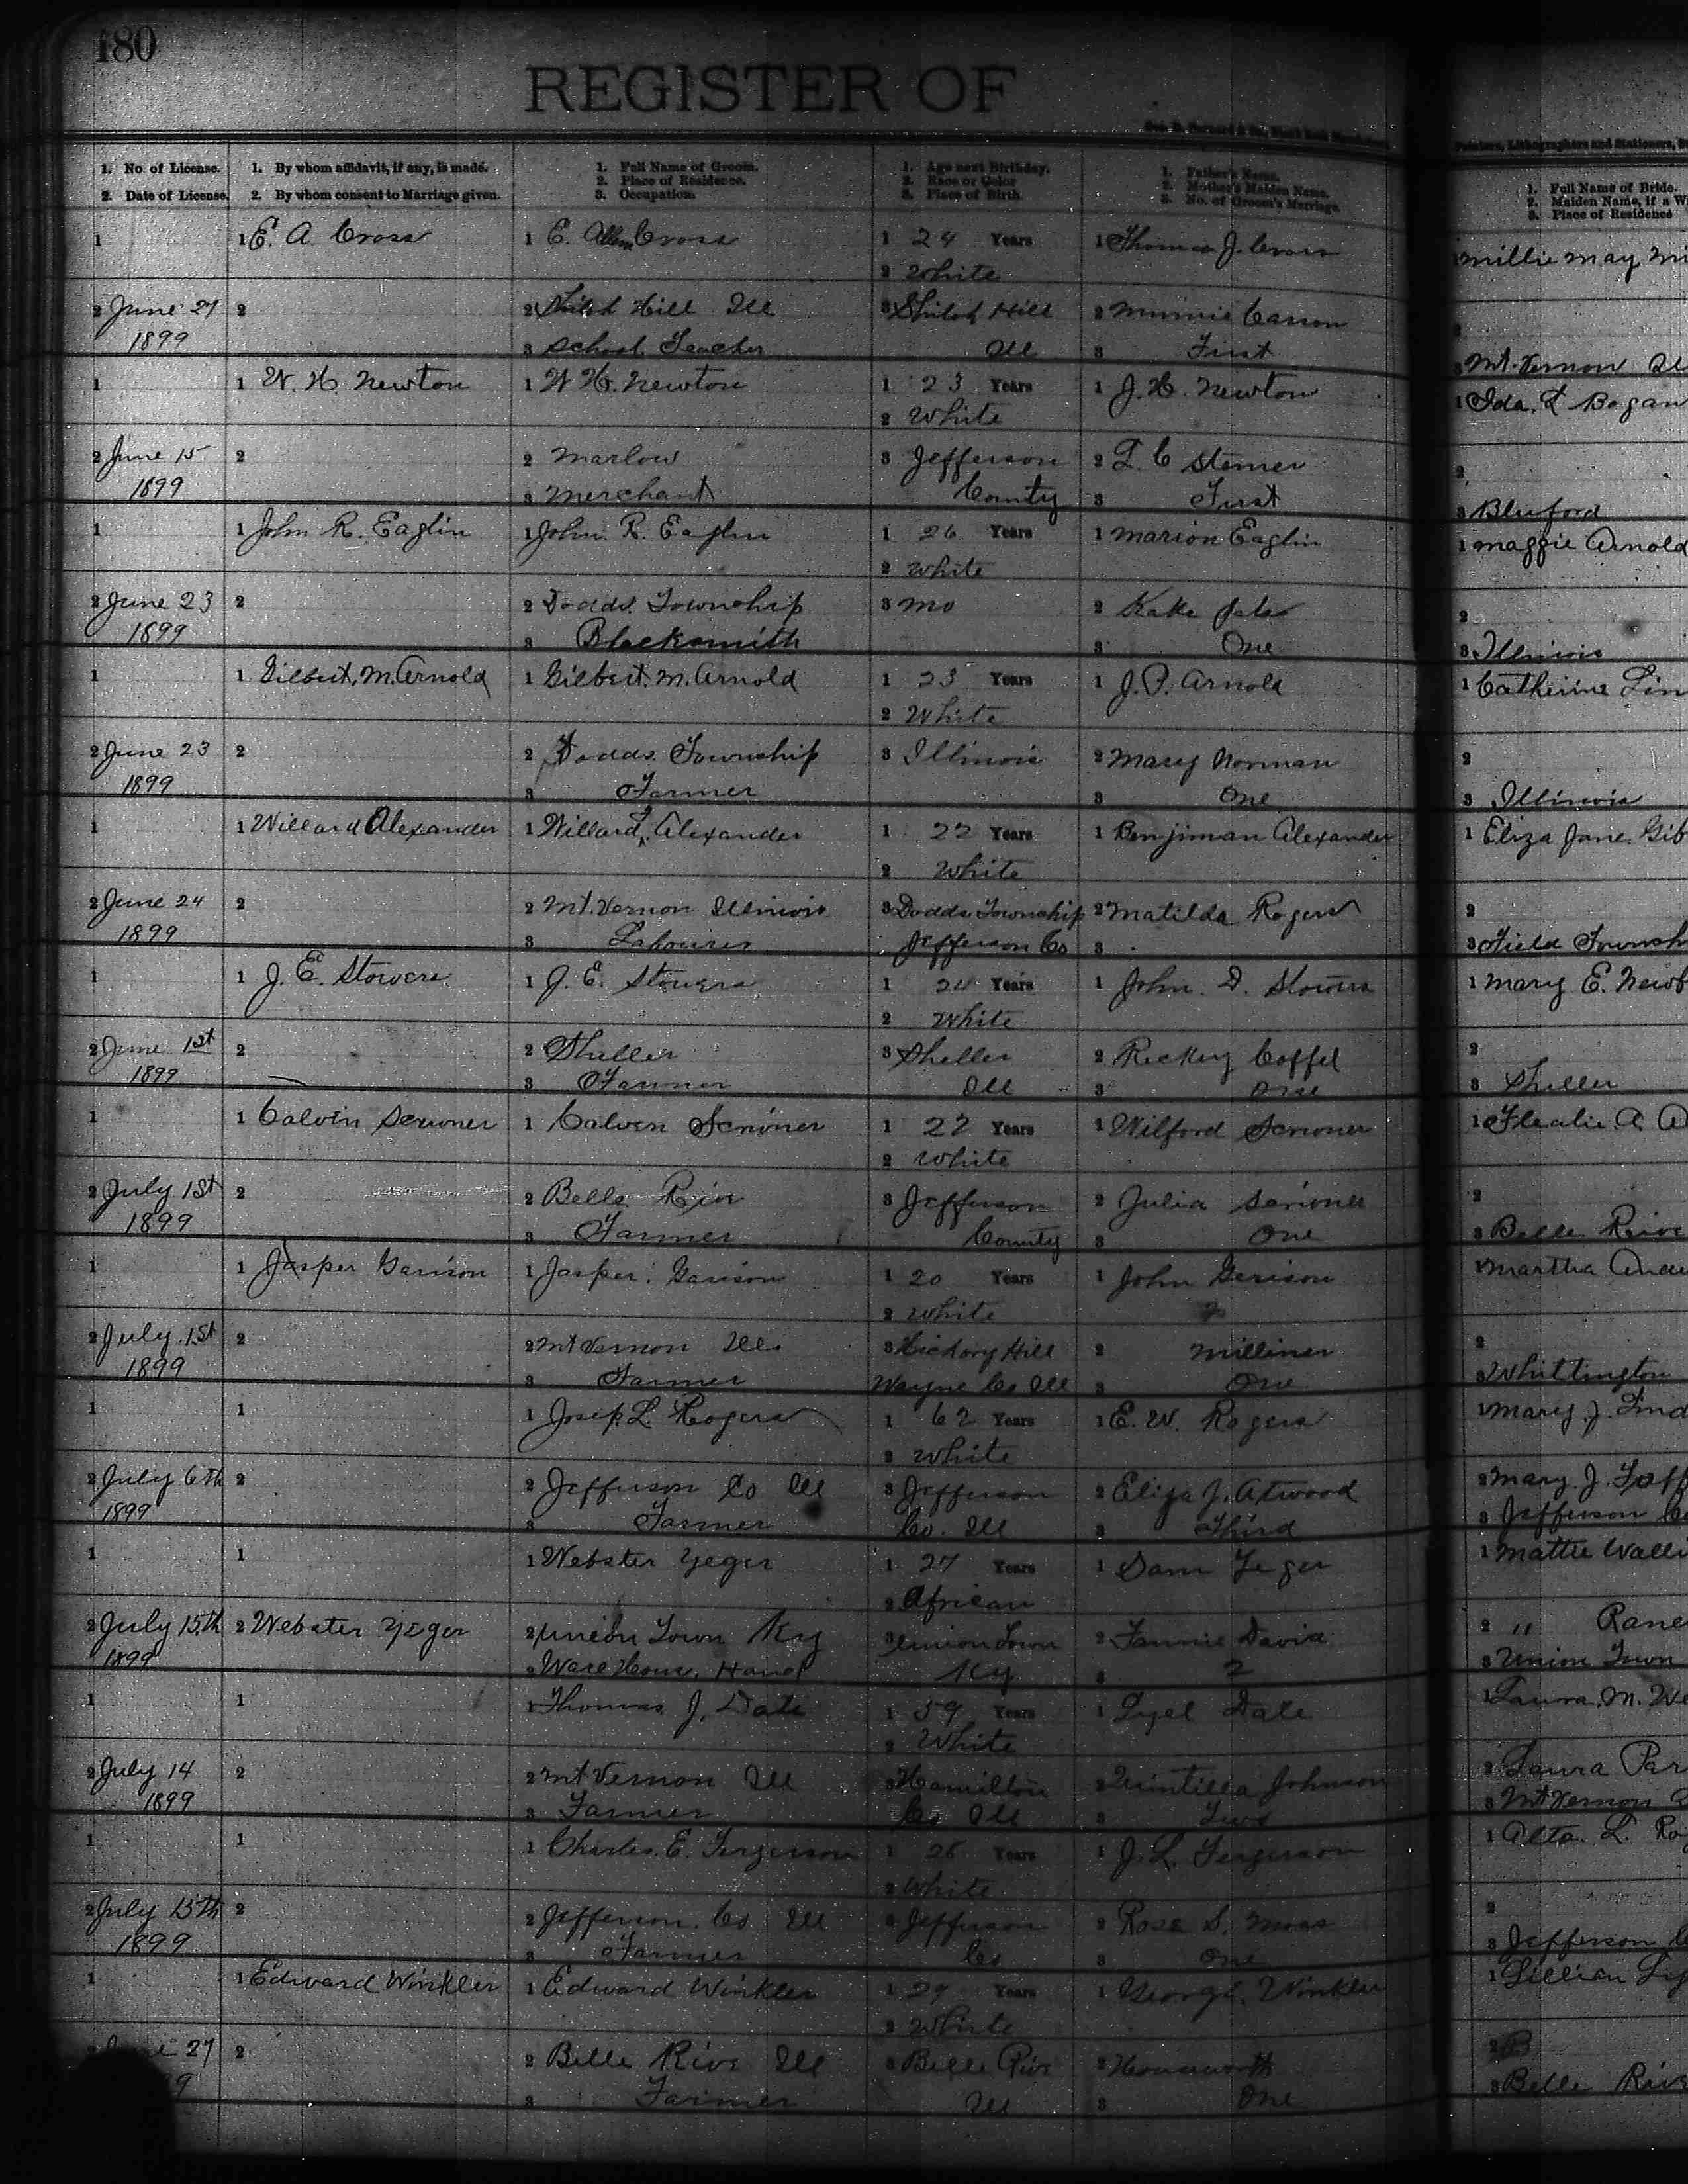 180
REGISTER OF
1. No of License.
2. Date of License.
1. By whom affidavit, if any, is made.
2. By whom consent to Marriage given.
1. Full Name of Groom.
2. Place of Residence.
3. Occupation.
1. Age next Birthday.
2. Race or Color
3. Place of Birth.
1. Father's Name.
2. Mother's Maiden Name.
3. No. of Groom's Marriage.
Printers, Lithographers and Stationers,
1. Full Name of Bride.
2. Maiden Name, if a Wi
3. Place of Residence
1 1 E. A Cross 1 E. Allen Cross 1 24 Years 1 Thomas J. Cross 1 Millie May Mi
2 White
2 June 27 2 2 Shiloh Hill Ill 3 Shiloh Hill 2 Minnie Carson 2
1899 3 School Teacher Ill 3 First 3 Mt. Vernon Ill
1 1 W. H. Newton 1 W H. Newton 1 23 Years 1 J. H. Newton 1 Ida. L Bogan
2 White
2 June 15 2 2 Marlow 3 Jefferson 2 L. C 2
1899 3 Merchant County 3 First 3 Bluford
1 1 John R. Eaglin 1 John R. Eaglin 1 26 Years 1 Marion Eaglin 1 Maggie Arnold
2 White
2 June 23 2 2 Dodds Township 3 Mo 2 Kate 2
1899 3 Blacksmith 3 One 3 Illinois
1 1 Gilbert. M. Arnold 1 Gilbert. M. Arnold 1 23 Years 1 J. P. Arnold 1 Catherine Lin
2 White
2 June 23 2 2 Dodds Township 3 Illinois 2 Mary Norman 2
1899 3 Farmer 3 One 3 Illinois
1 1 Willard Alexander 1 Willard Alexander 1 22 Years 1 Benjiman Alexander 1 Eliza Jane Gib
2 White
2 June 24 2 2 Mt. Vernon Illinois 3 Dodds Township 2 Matilda Rogers 2
1899 3 Labourer Jefferson Co 3 3 Field Townsh
1 1 J. E. Stowers 1 J. E. Stowers 1 Years 1 John D. Stowers 1 Mary E. Newb
2 White
2 June 1st 2 2 Sheller 3 Sheller 2 Coffel 2
1899 3 Farmer Ill 3 One 3 Sheller
1 1 Calvin Scrivner 1 Calvin Scrivner 1 22 Years 1 Wilford Scrivner 1 A. A
2 White
2 July 1st 2 2 Belle Rive 3 Jefferson 2 Julia Scrivner 2
1899 3 Farmer County 3 One 3 Belle Rive
1 1 Jasper Garison 1 Jasper Garison 1 20 Years 1 John Gerison 1 Martha Ande
2 White
2 July 1st 2 2 Mt Vernon Ill 3 Hickory Hill 2 Milliner 2
1899 3 Farmer Wayne Co Ill 3 One 3 Whittington
1 1 1 Josep L. Rogers 1 62 Years 1 E. W. Rogers 1 Mary J. Lind
2 White
2 July 6th 2 2 Jefferson Co Ill 3 Jefferson 2 Eliza J. Atwood 2 Mary. J. Taff
1899 3 Farmer Co. Ill 3 Third 3 Jefferson Co
1 1 1 Webster Yeger 1 27 Years 1 Sam Yeger 1 Mattie Walli
2 African
2 July 15th 2 Webster Yeger 2 Union Town Ky 3 Union Town 2 Fannie Davis 2 " Rane
1899 3 Ware House Hand Ky 3 2 3 Union Town
1 1 1 Thomas J. Dale 1 59 Years 1 Dale 1 Laura. M. We
2 White
2 July 14 2 2 Mt Vernon Ill 3 Hamilton 2 Quintilla Johnson 2 Laura Par
1899 3 Farmer Co Ill 3 Two 3 Mt Vernon
1 1 1 Charles. E. Fergerson 1 26 Years 1 J. L. Fergerson 1 Alta. L. Ro
2 White
2 July 15th 2 2 Jefferson Co Ill 3 Jefferson 2 Rose S. Moss 2
1899 3 Farmer Co 3 One 3 Jefferson C
1 1 Edward Winkler 1 Edward Winkler 1 29 Years 1 George Winkler 1 Lillian
2 White
27 2 2 Belle Rive Ill 3 Belle Rive 2 Houseworth 2
9 3 Farmer Ill 3 One 3 Belle Rive